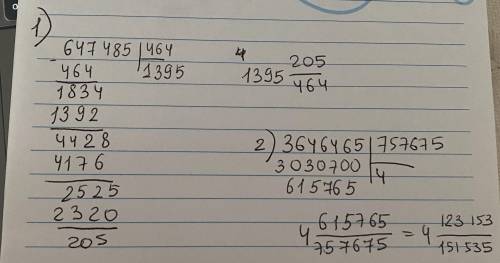 1)
647485 |464
- 464 1395
1834
1392
4428
4176
2525
2320
205
4
1395 205/464
2) 3646465 |757675
3030700 4
615765
4 615765/757675 = 4 123153/151535